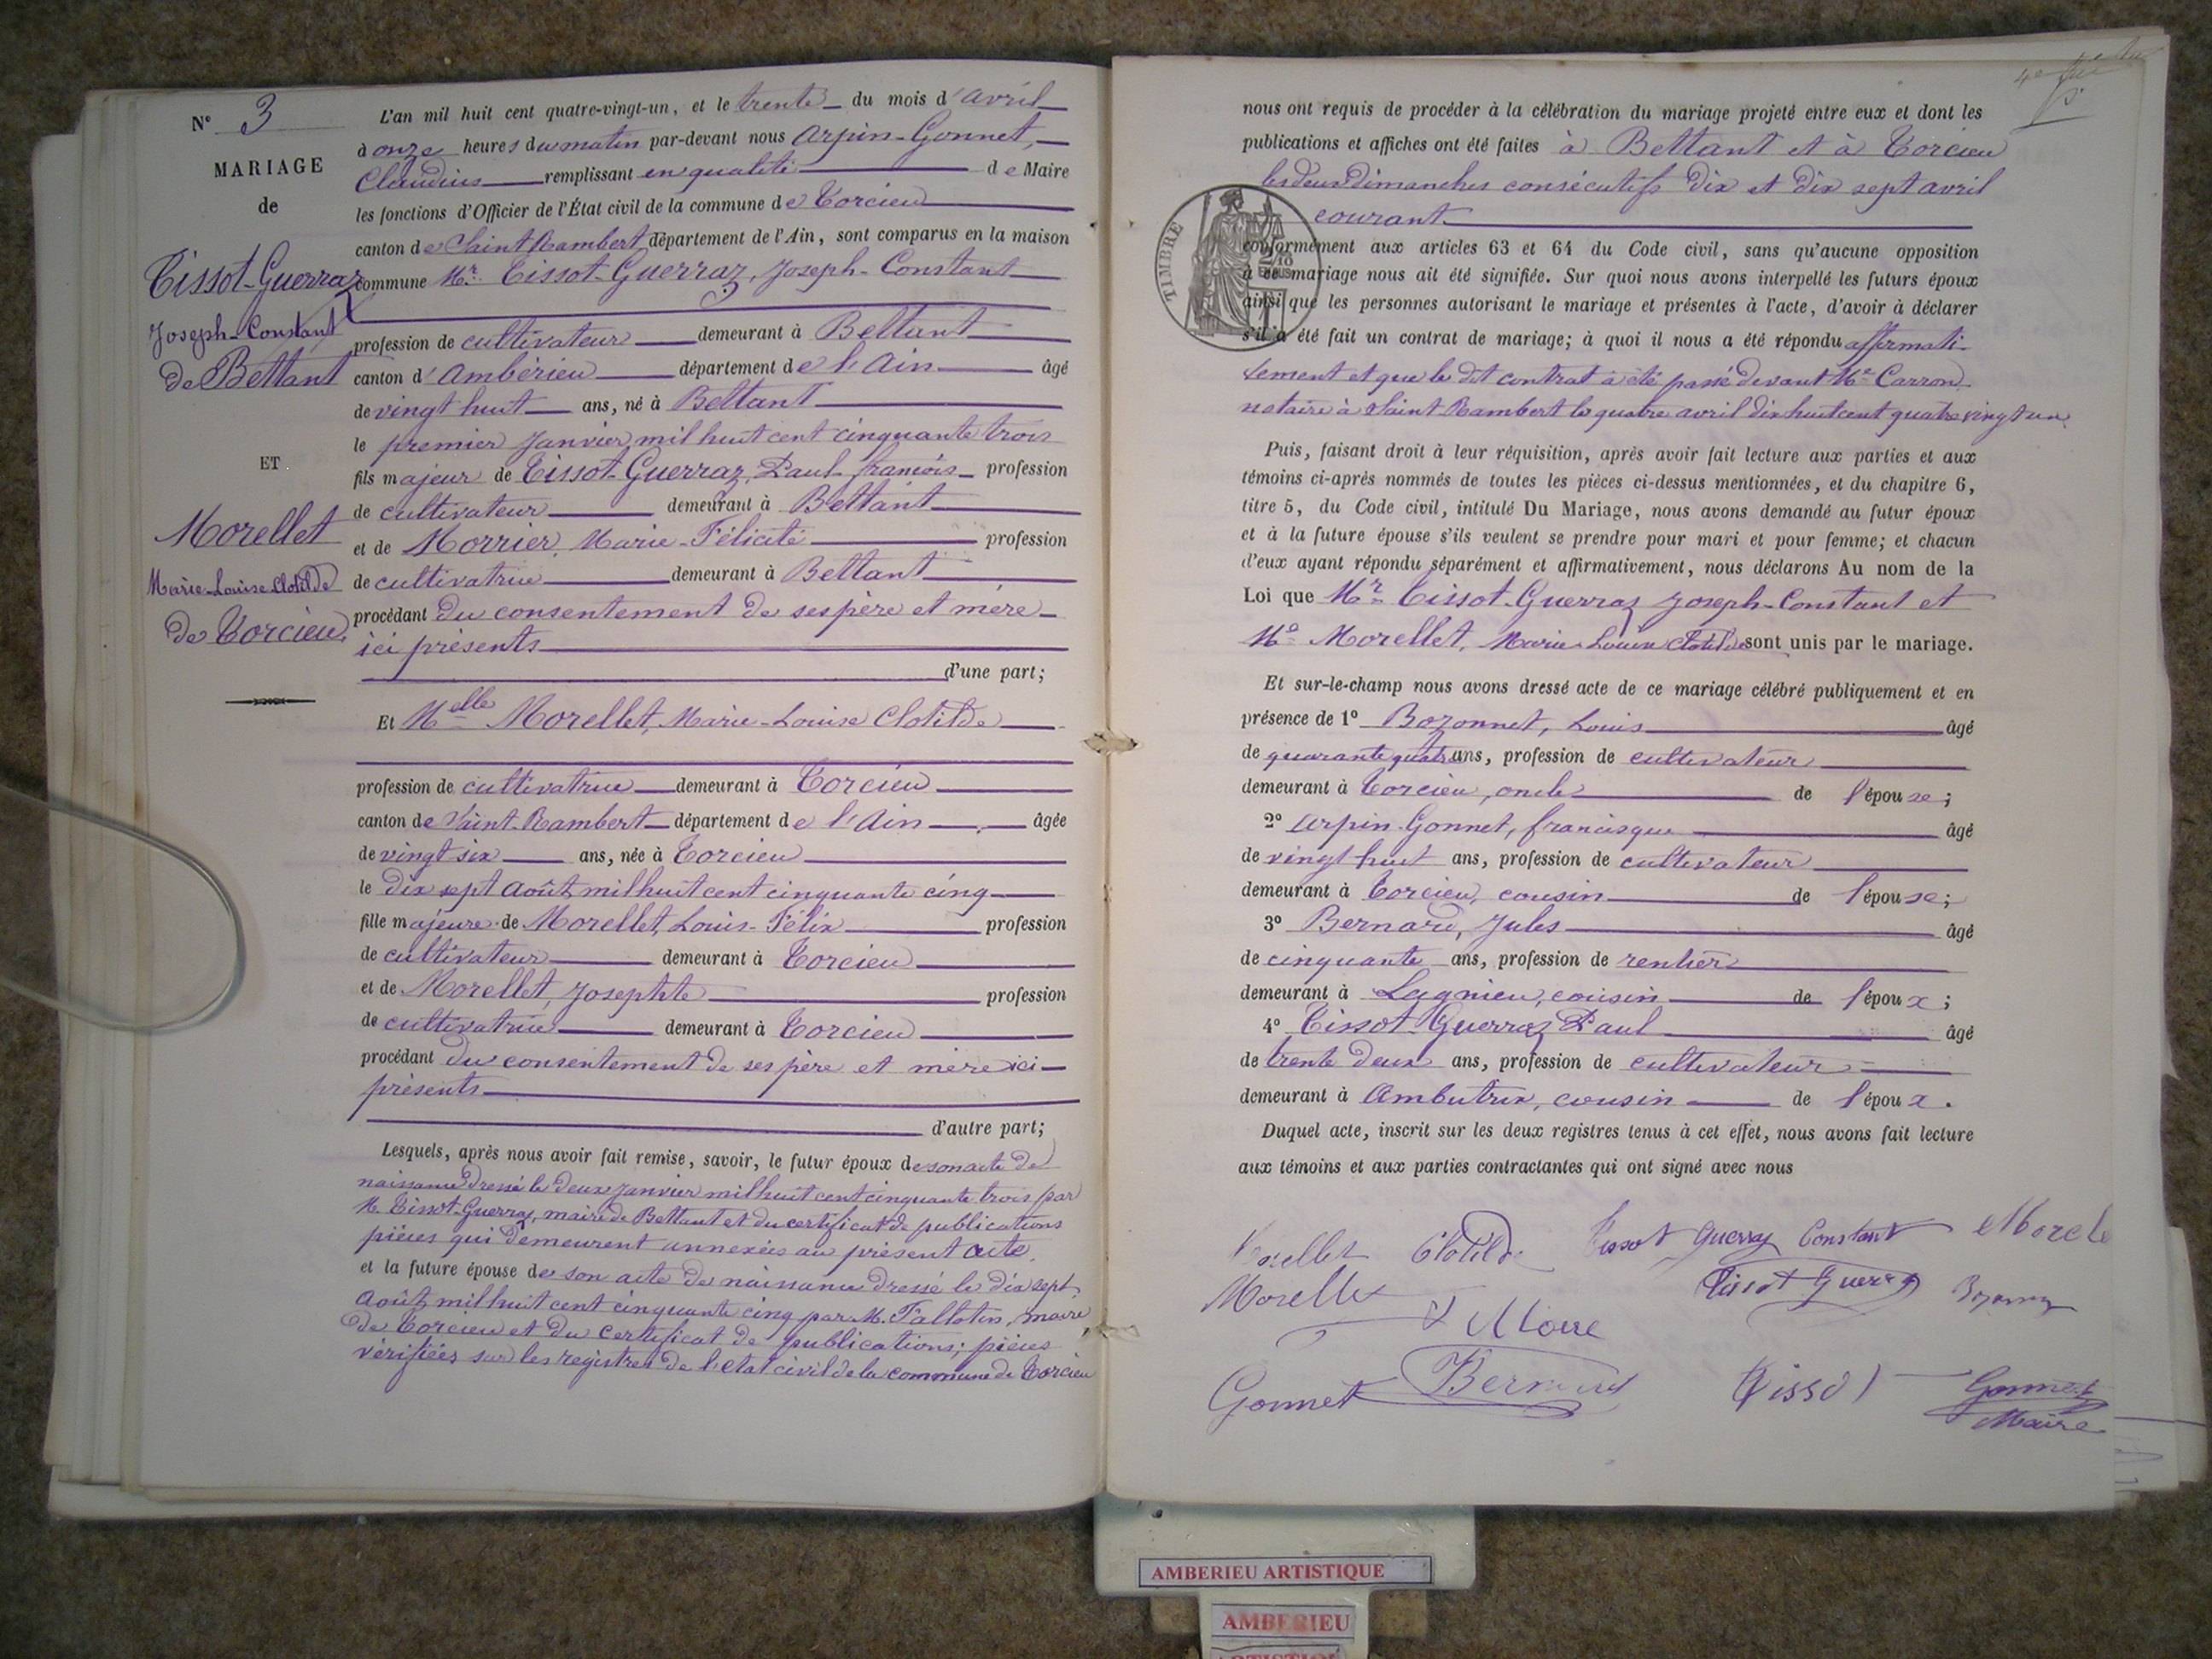 N° 3
MARIAGE
de
Tissot-Guerraz
Joseph-Constant
de Bettant
ET
Morellet
Marie-Louise Clotilde
de Torcieu
L'an mil huit cent quatre-vingt-un, et le trente du mois d'avril
à onze heures du matin par-devant nous Arpin-Gonnet,
Claudius remplissant en qualité de Maire
les fonctions d'Officier de l'État civil de la commune de Torcieu
canton de Saint Rambert département de l'Ain, sont comparus en la maison
commune Mr. Tissot-Guerraz, Joseph-Constant
profession de cultivateur demeurant à Bettant
canton d'Ambérieu département de l'Ain âgé
de vingt huit ans, né à Bettant
le premier Janvier mil huit cent cinquante trois
fils majeur de Tissot-Guerraz, Paul françois profession
de cultivateur demeurant à Bettant
et de Morrier, Marie-Félicité profession
de cultivatrice demeurant à Bettant
procédant du consentement de ses père et mère
ici présents
d'une part;
Et Melle Morellet, Marie-Louise Clotilde
profession de cultivatrice demeurant à Torcieu
canton de Saint-Rambert département de l'Ain âgée
de vingt six ans, née à Torcieu
le dix sept Août mil huit cent cinquante cinq
fille majeure de Morellet, Louis-Félix profession
de cultivateur demeurant à Torcieu
et de Morellet, Josephte profession
de cultivatrice demeurant à Torcieu
procédant du consentement de ses père et mère ici
présents
d'autre part;
Lesquels, après nous avoir fait remise, savoir, le futur époux de son acte de
naissance dressé le deux Janvier mil huit cent cinquante trois par
M. Tissot-Guerraz, maire de Bettant et du certificat de publications
pièces qui demeurent annexées au présent acte.
et la future épouse de son acte de naissance dressé le dix sept
Août mil huit cent cinquante cinq par M. Tallotin, maire
de Torcieu et du certificat de publications; pièces
vérifiées sur les registres de l'état civil de la commune de Torcieu
nous ont requis de procéder à la célébration du mariage projeté entre eux et dont les
publications et affiches ont été faites à Bettant et à Torcieu
les deux dimanches consécutifs dix et dix sept avril
courant
TIMBRE
conformément aux articles 63 et 64 du Code civil, sans qu'aucune opposition
à ce mariage nous ait été signifiée. Sur quoi nous avons interpellé les futurs époux
ainsi que les personnes autorisant le mariage et présentes à l'acte, d'avoir à déclarer
s'il a été fait un contrat de mariage; à quoi il nous a été répondu affirmati-
vement et que le dit contrat a été passé devant Me Carron
notaire à Saint Rambert le quatre avril dix huit cent quatre vingt un.
Puis, faisant droit à leur réquisition, après avoir fait lecture aux parties et aux
témoins ci-après nommés de toutes les pièces ci-dessus mentionnées, et du chapitre 6,
titre 5, du Code civil, intitulé Du Mariage, nous avons demandé au futur époux
et à la future épouse s'ils veulent se prendre pour mari et pour femme; et chacun
d'eux ayant répondu séparément et affirmativement, nous déclarons Au nom de la
Loi que Mr Tissot-Guerraz Joseph-Constant et
Me Morellet, Marie-Louise Clotilde sont unis par le mariage.
Et sur-le-champ nous avons dressé acte de ce mariage célébré publiquement et en
présence de 1° Bozonnet, Louis âgé
de quarante quatre ans, profession de cultivateur
demeurant à Torcieu, oncle de l'épouse;
2° Arpin-Gonnet, francisque âgé
de vingt huit ans, profession de cultivateur
demeurant à Torcieu, cousin de l'épouse;
3° Bernard, Jules âgé
de cinquante ans, profession de rentier
demeurant à Lagnieu, cousin de l'époux;
4° Tissot-Guerraz Paul âgé
de trente deux ans, profession de cultivateur
demeurant à Ambutrix, cousin de l'époux.
Duquel acte, inscrit sur les deux registres tenus à cet effet, nous avons fait lecture
aux témoins et aux parties contractantes qui ont signé avec nous
Morellet Clotilde Tissot Guerraz Constant
Morellet Tissot Guerraz
Gonnet Bernard Tissot Gonnet
Maire
AMBERIEU ARTISTIQUE
AMBERIEU
ARTISTIQUE